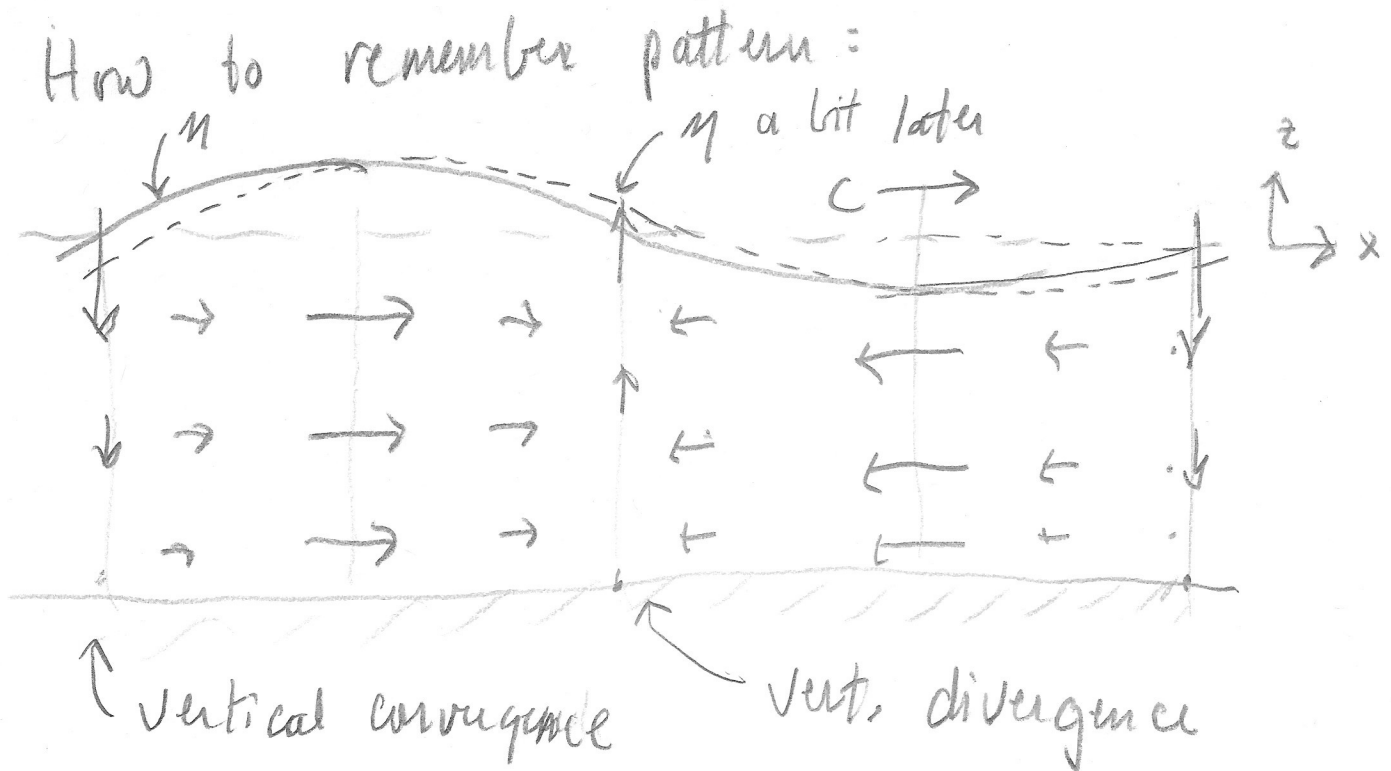 How to remember pattern:
η η a bit later
z
c
x
vertical convergence vert. divergence